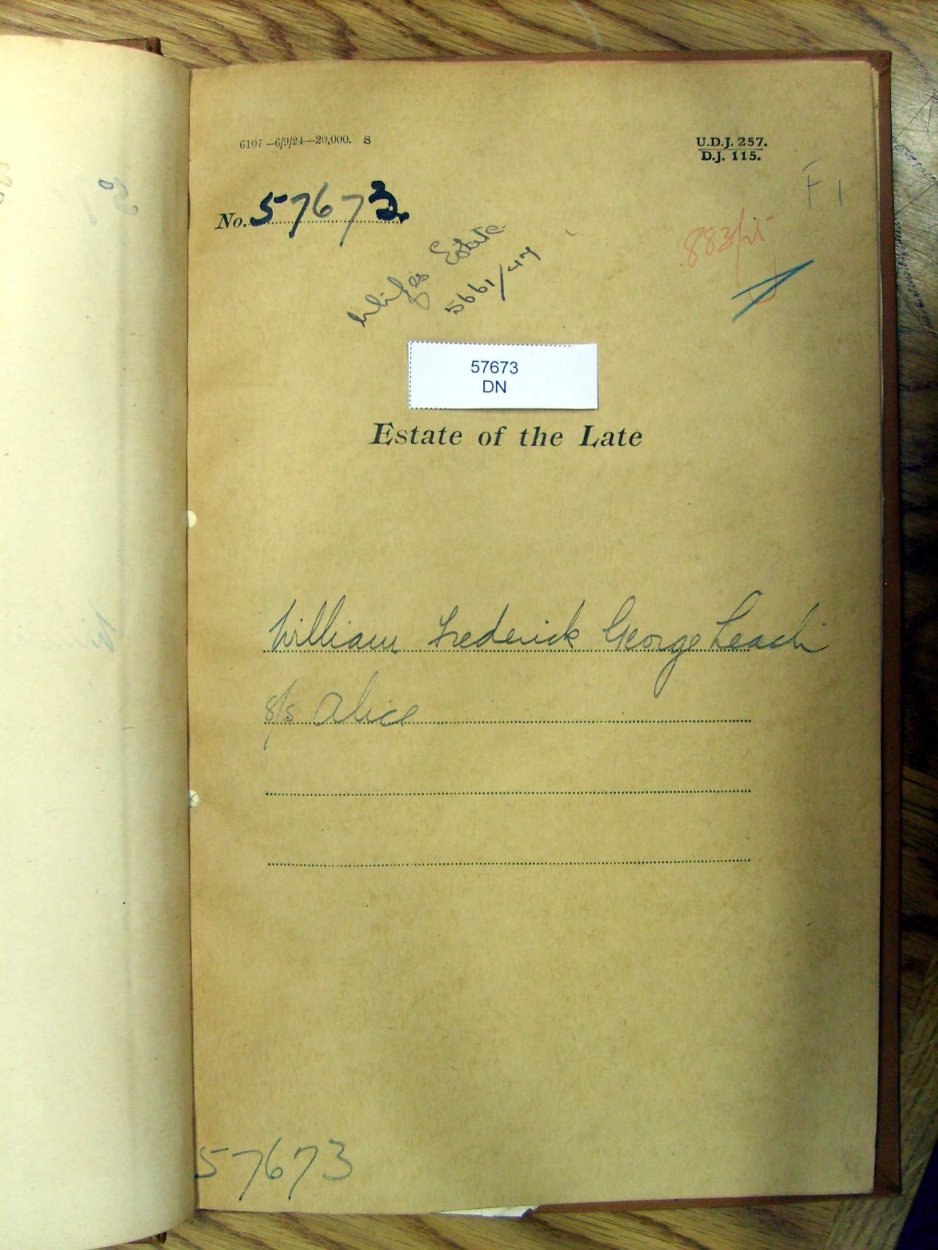 6107—6/9/24—20,000. S
U.D.J. 257.
D.J. 115.
F 1
No. 57673.
Wifes Estate
5661/47
57673
DN
Estate of the Late
William Frederick George Leach
s/s Alice
57673